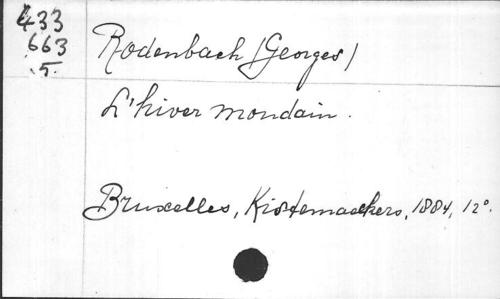 433
663
.5.
Rodenbach (Georges)
L'hiver mondain.
Bruxelles, Kistemaekers, 1884, 12°.